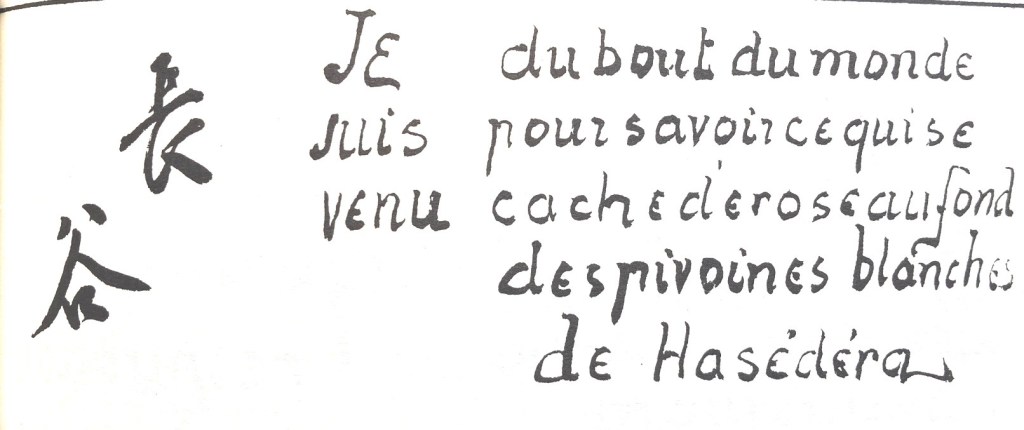 長
谷
JE
suis
venu
du bout du monde
pour savoir ce qui se
cache de rose au fond
des pivoines blanches
de Hasédéra